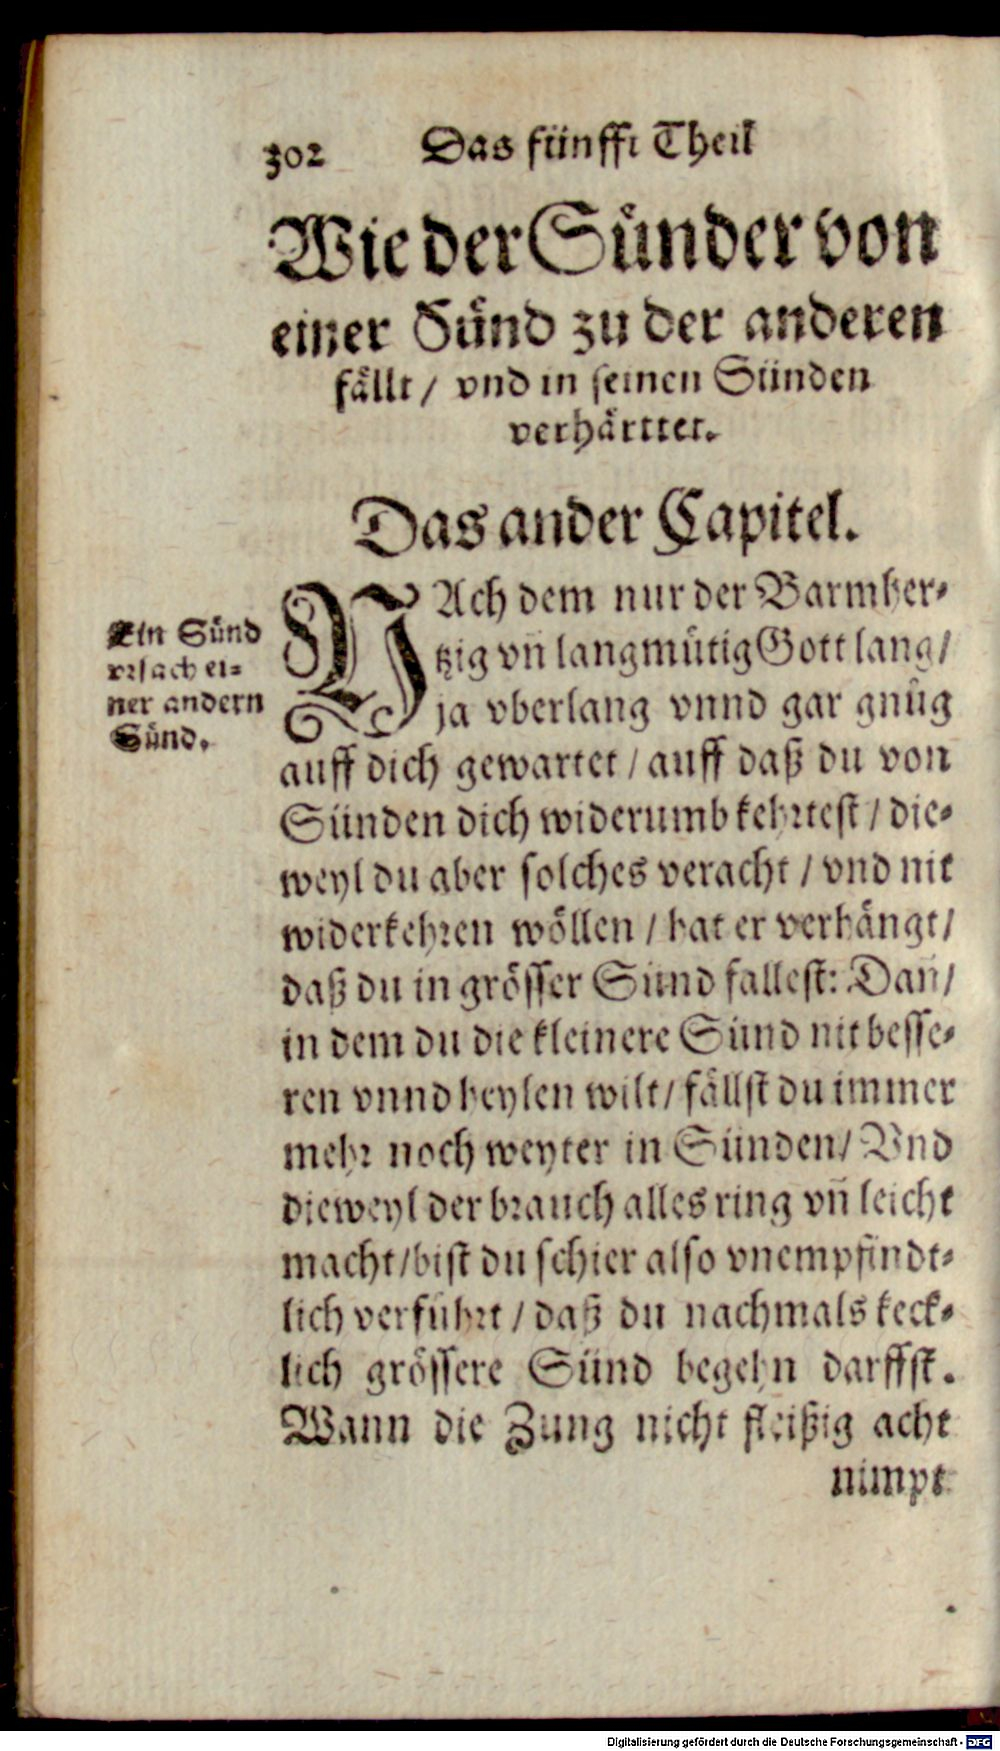 302 Das fünfft Theil
Wie der Sünder von
einer Sünd zu der anderen
fällt / vnd in seinen Sünden
verhärttet.
Das ander Capitel.
Ein Sünd
vrsach ei-
ner andern
Sünd.
NAch dem nur der Barmher-
tzig vñ langmütig Gott lang /
ja vberlang vnnd gar gnůg
auff dich gewartet / auff daß du von
Sünden dich widerumb kehrtest / die-
weyl du aber solches veracht / vnd nit
widerkehren wöllen / hat er verhängt /
daß du in grösser Sünd fallest: Dañ /
in dem du die kleinere Sünd nit besse-
ren vnnd heylen wilt / fällst du immer
mehr noch weyter in Sünden / Vnd
dieweyl der brauch alles ring vñ leicht
macht / bist du schier also vnempfindt-
lich verführt / daß du nachmals keck-
lich grössere Sünd begehn darffst.
Wann die Zung nicht fleißig acht
nimpt
Digitalisierung gefördert durch die Deutsche Forschungsgemeinschaft - DFG